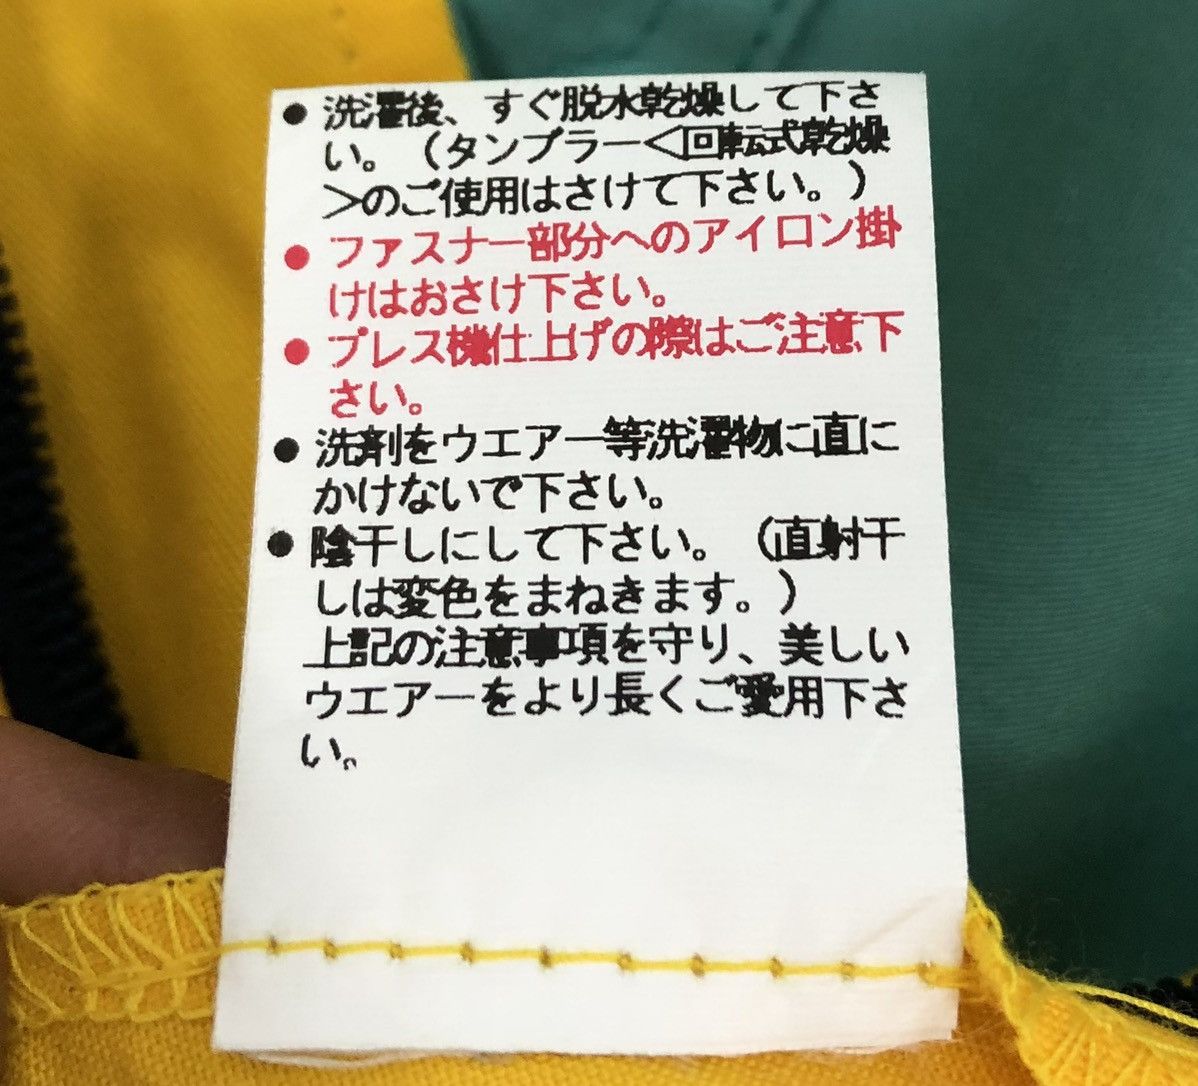 ● 洗濯後、すぐ脱水乾燥して下さ
い。（タンブラー<回転式乾燥
>のご使用はさけて下さい。）
● ファスナー部分へのアイロン掛
けはおさけ下さい。
● プレス機仕上げの際はご注意下
さい。
● 洗剤をウエアー等洗濯物に直に
かけないで下さい。
● 陰干しにして下さい。（直射干
しは変色をまねきます。）
上記の注意事項を守り、美しい
ウエアーをより長くご愛用下さ
い。